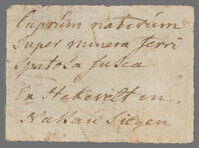 Cuprum nativum
super minera ferri
spatosa fusca
Ex
Nassau Siegen